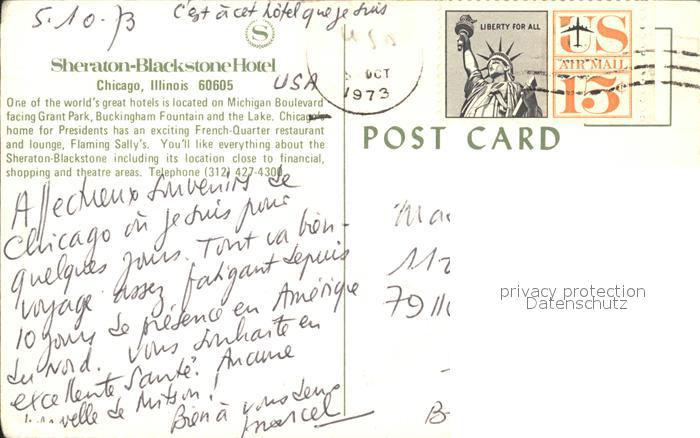 5.10.73
C'est à cet hôtel que je suis
S
Sheraton-Blackstone Hotel
Chicago, Illinois 60605
USA
One of the world's great hotels is located on Michigan Boulevard
facing Grant Park, Buckingham Fountain and the Lake. Chicago's
home for Presidents has an exciting French-Quarter restaurant
and lounge, Flaming Sally's. You'll like everything about the
Sheraton-Blackstone including its location close to financial,
shopping and theatre areas. Telephone (312) 427-4300.
Affectueux souvenirs de
Chicago où je suis pour
quelques jours. Tout va bien -
voyage assez fatigant depuis
10 jours de présence en Amérique
du Nord. Vous souhaite en
excellente santé. Aucune
nouvelle de
Bien à vous deux
Marcel
USA
OCT
1973
LIBERTY FOR ALL
US
AIR MAIL
15¢
POST CARD
Ma
112
79
B-
privacy protection
Datenschutz